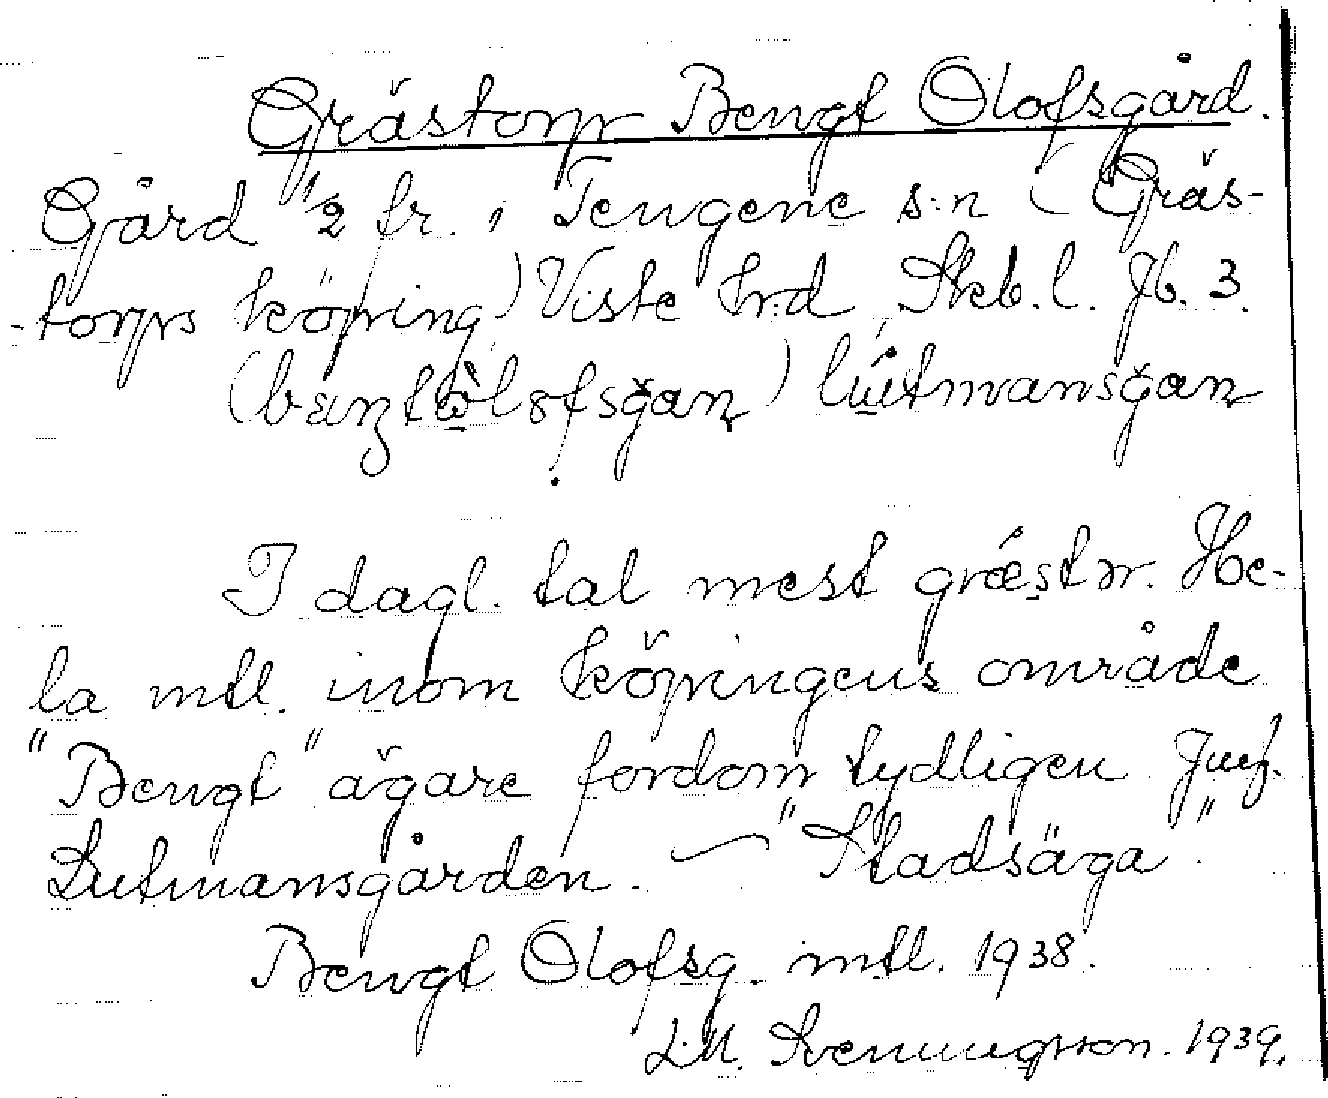 Grästorp Bengt Olofsgård.
Gård 1/2 fr. i Tengene s:n (Gräs-
-torps köping) Viste hrd Skb. l. Jb. 3.
(bæŋtòlofsğaɳ) lútmansğaɳ
I dagl. tal mest grǽstɔr. He-
la mtl. inom köpingens område
"Bengt" ägare fordom tydligen Jmf.
Lutmansgården. — "Stadsäga"
Bengt Olofsg. mtl. 1938.
L.M. Svenungsson. 1939.